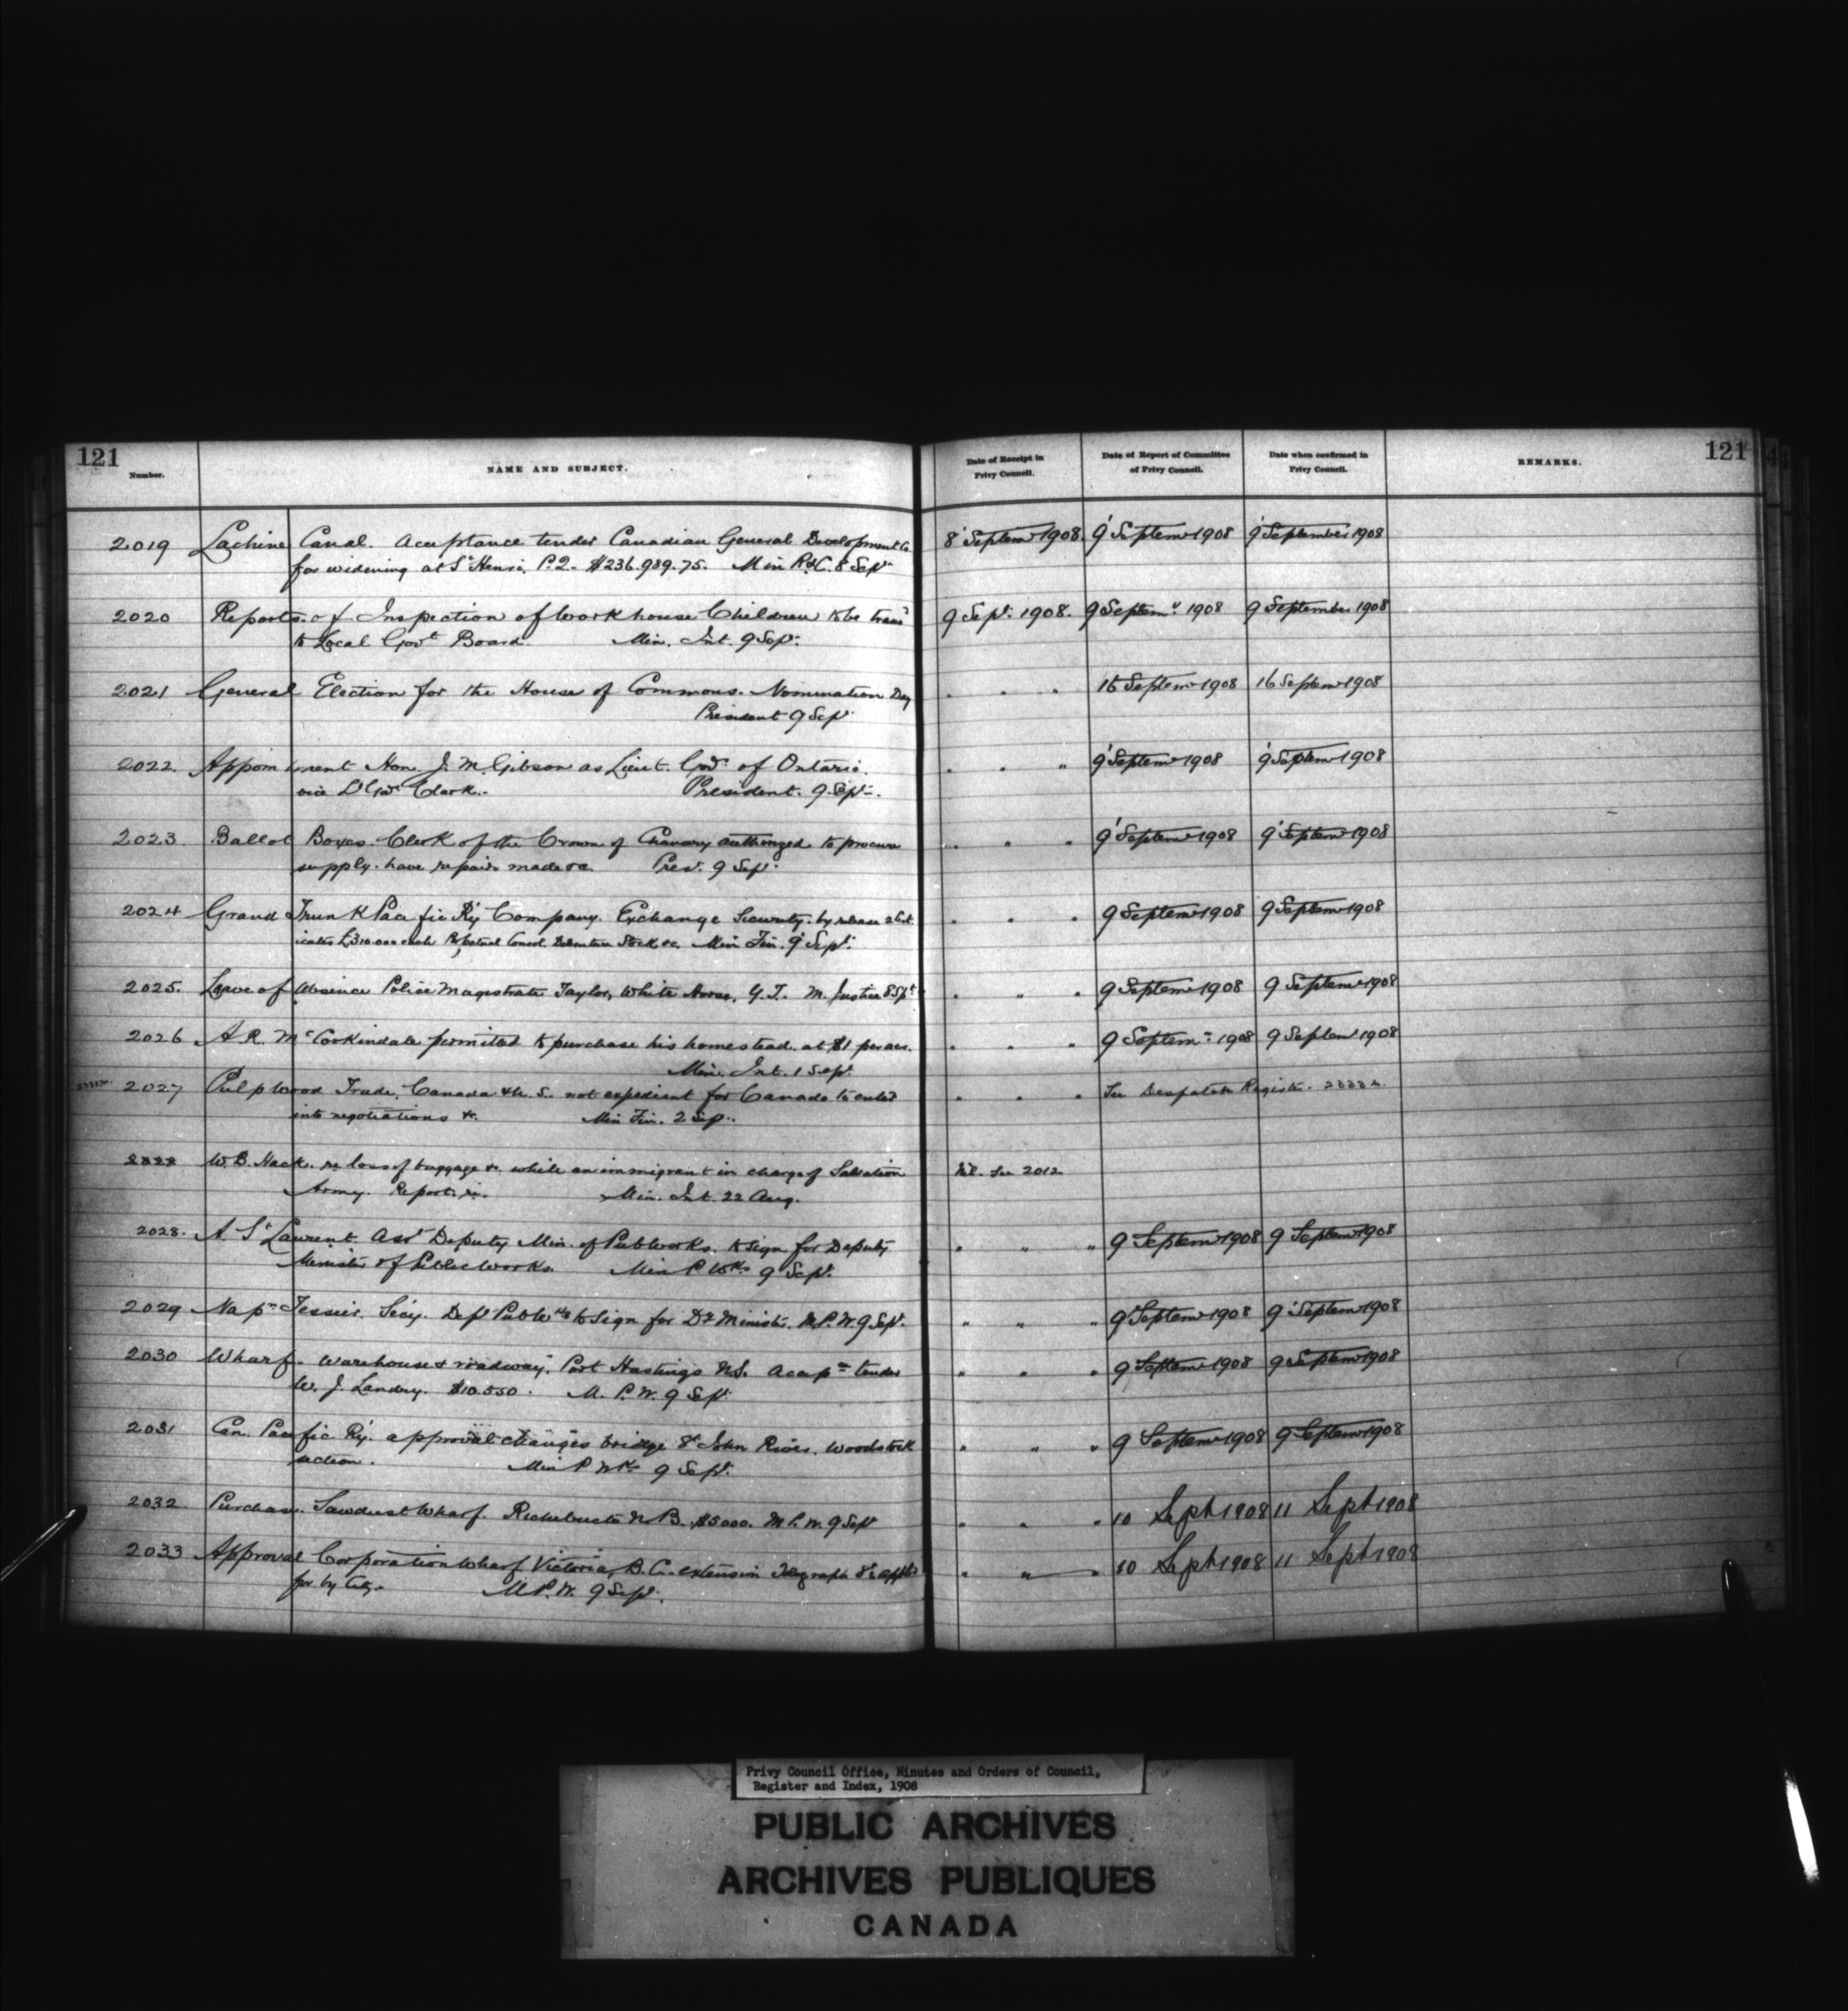 121
Number.
NAME AND SUBJECT.
Date of Receipt in Privy Council.
Date of Report of Committee of Privy Council.
Date when confirmed in Privy Council.
REMARKS.
121
2019 Lachine Canal. Acceptance tender Canadian General Development Co 8' Septemr 1908. 9' Septemr 1908 9' September 1908
for widening at St Henri. P.Q. $236.989.75. Min R&C. 8 Sept
2020 Reports of Inspection of Workhouse Children to be trans'd 9 Sept. 1908. 9 Septemr 1908 9 September 1908
to Local Govt Board. Min. Int. 9 Sep.
2021 General Election for the House of Commons. Nomination Day " " " 16 Septemr 1908 16 Septemr 1908
President 9 Sept
2022. Appointment Hon. J. M. Gibson as Lieut. Govr. of Ontario. " " " 9' Septemr 1908 9' Septemr 1908
vice Lt Govr Clark. President. 9 Sept.
2023 Ballot Boxes. Clerk of the Crown of Chancery authorized to procure " " " 9' Septemr 1908 9' Septemr 1908
supply. have repairs made &c. Pres. 9 Sep.
2024 Grand Trunk Pacific Ry Company. Exchange Security. by release 2 " " " 9 Septemr 1908 9 Septemr 1908
Perpetual Consol. Debenture Stock &c. Min Fin. 9' Sept.
2025. Leave of Absence Police Magistrate Taylor, White Horse, Y.T. M. Justice 8 Spt " " " 9 Septemr 1908 9 Septemr 1908
2026 A. R. McCorkindale permitted to purchase his homestead. at $1 per acre. " " " 9 Septemr 1908 9 Septemr 1908
Min. Int. 1 Sept.
2027 Pulpwood Trade, Canada & U. S. not expedient for Canada to enter " " " See Despatch Register.
into negotiations &c. Min Fin. 2 Sep.
2028 W. B. Hack. re loss of baggage &c. while an immigrant in charge of Salvation Nil. See 2012
Army. Report in. Min. Int. 22 Aug.
2028. A. St Laurent. Asst Deputy Min. of Pub Works. to sign for Deputy " " " 9 Septemr 1908 9 Septemr 1908
Minister of Public Works. Min P Wks 9 Sept.
2029 Napn Tessier. Secy. Dept Public Wks to Sign for Dy Minister. M.P.W. 9 Sept. " " " 9' Septemr 1908 9' Septemr 1908
2030 Wharf. Warehouse & roadway, Port Hastings N.S. Accepce tender " " " 9 Septemr 1908 9 Septemr 1908
W. J. Landry. $10.550. M. P. W. 9 Sept.
2031 Can. Pacific Ry. approval changes bridge St John River, Woodstock " " " 9 Septemr 1908 9 Septemr 1908
section. Min P Wks 9 Sept.
2032 Purchase Sawdust Wharf. Richibucto N.B. $5000. M. P. W. 9 Sept " " " 10 Sept 1908 11 Sept 1908
2033 Approval Corporation Wharf Victoria, B. C. extension Telegraph St applied " " " 10 Sept 1908 11 Sept 1908
for by City. M.P.W. 9 Sept.
Privy Council Office, Minutes and Orders of Council,
Register and Index, 1908
PUBLIC ARCHIVES
ARCHIVES PUBLIQUES
CANADA